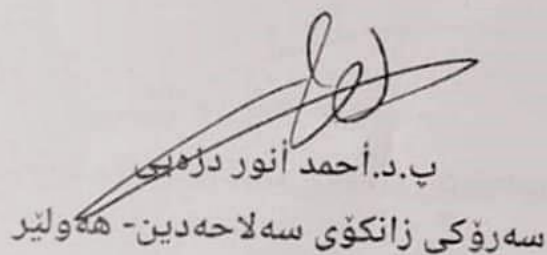 پ.د.أحمد أنور دزەیی
سەرۆکی زانکۆی سەلاحەدین- هەولێر